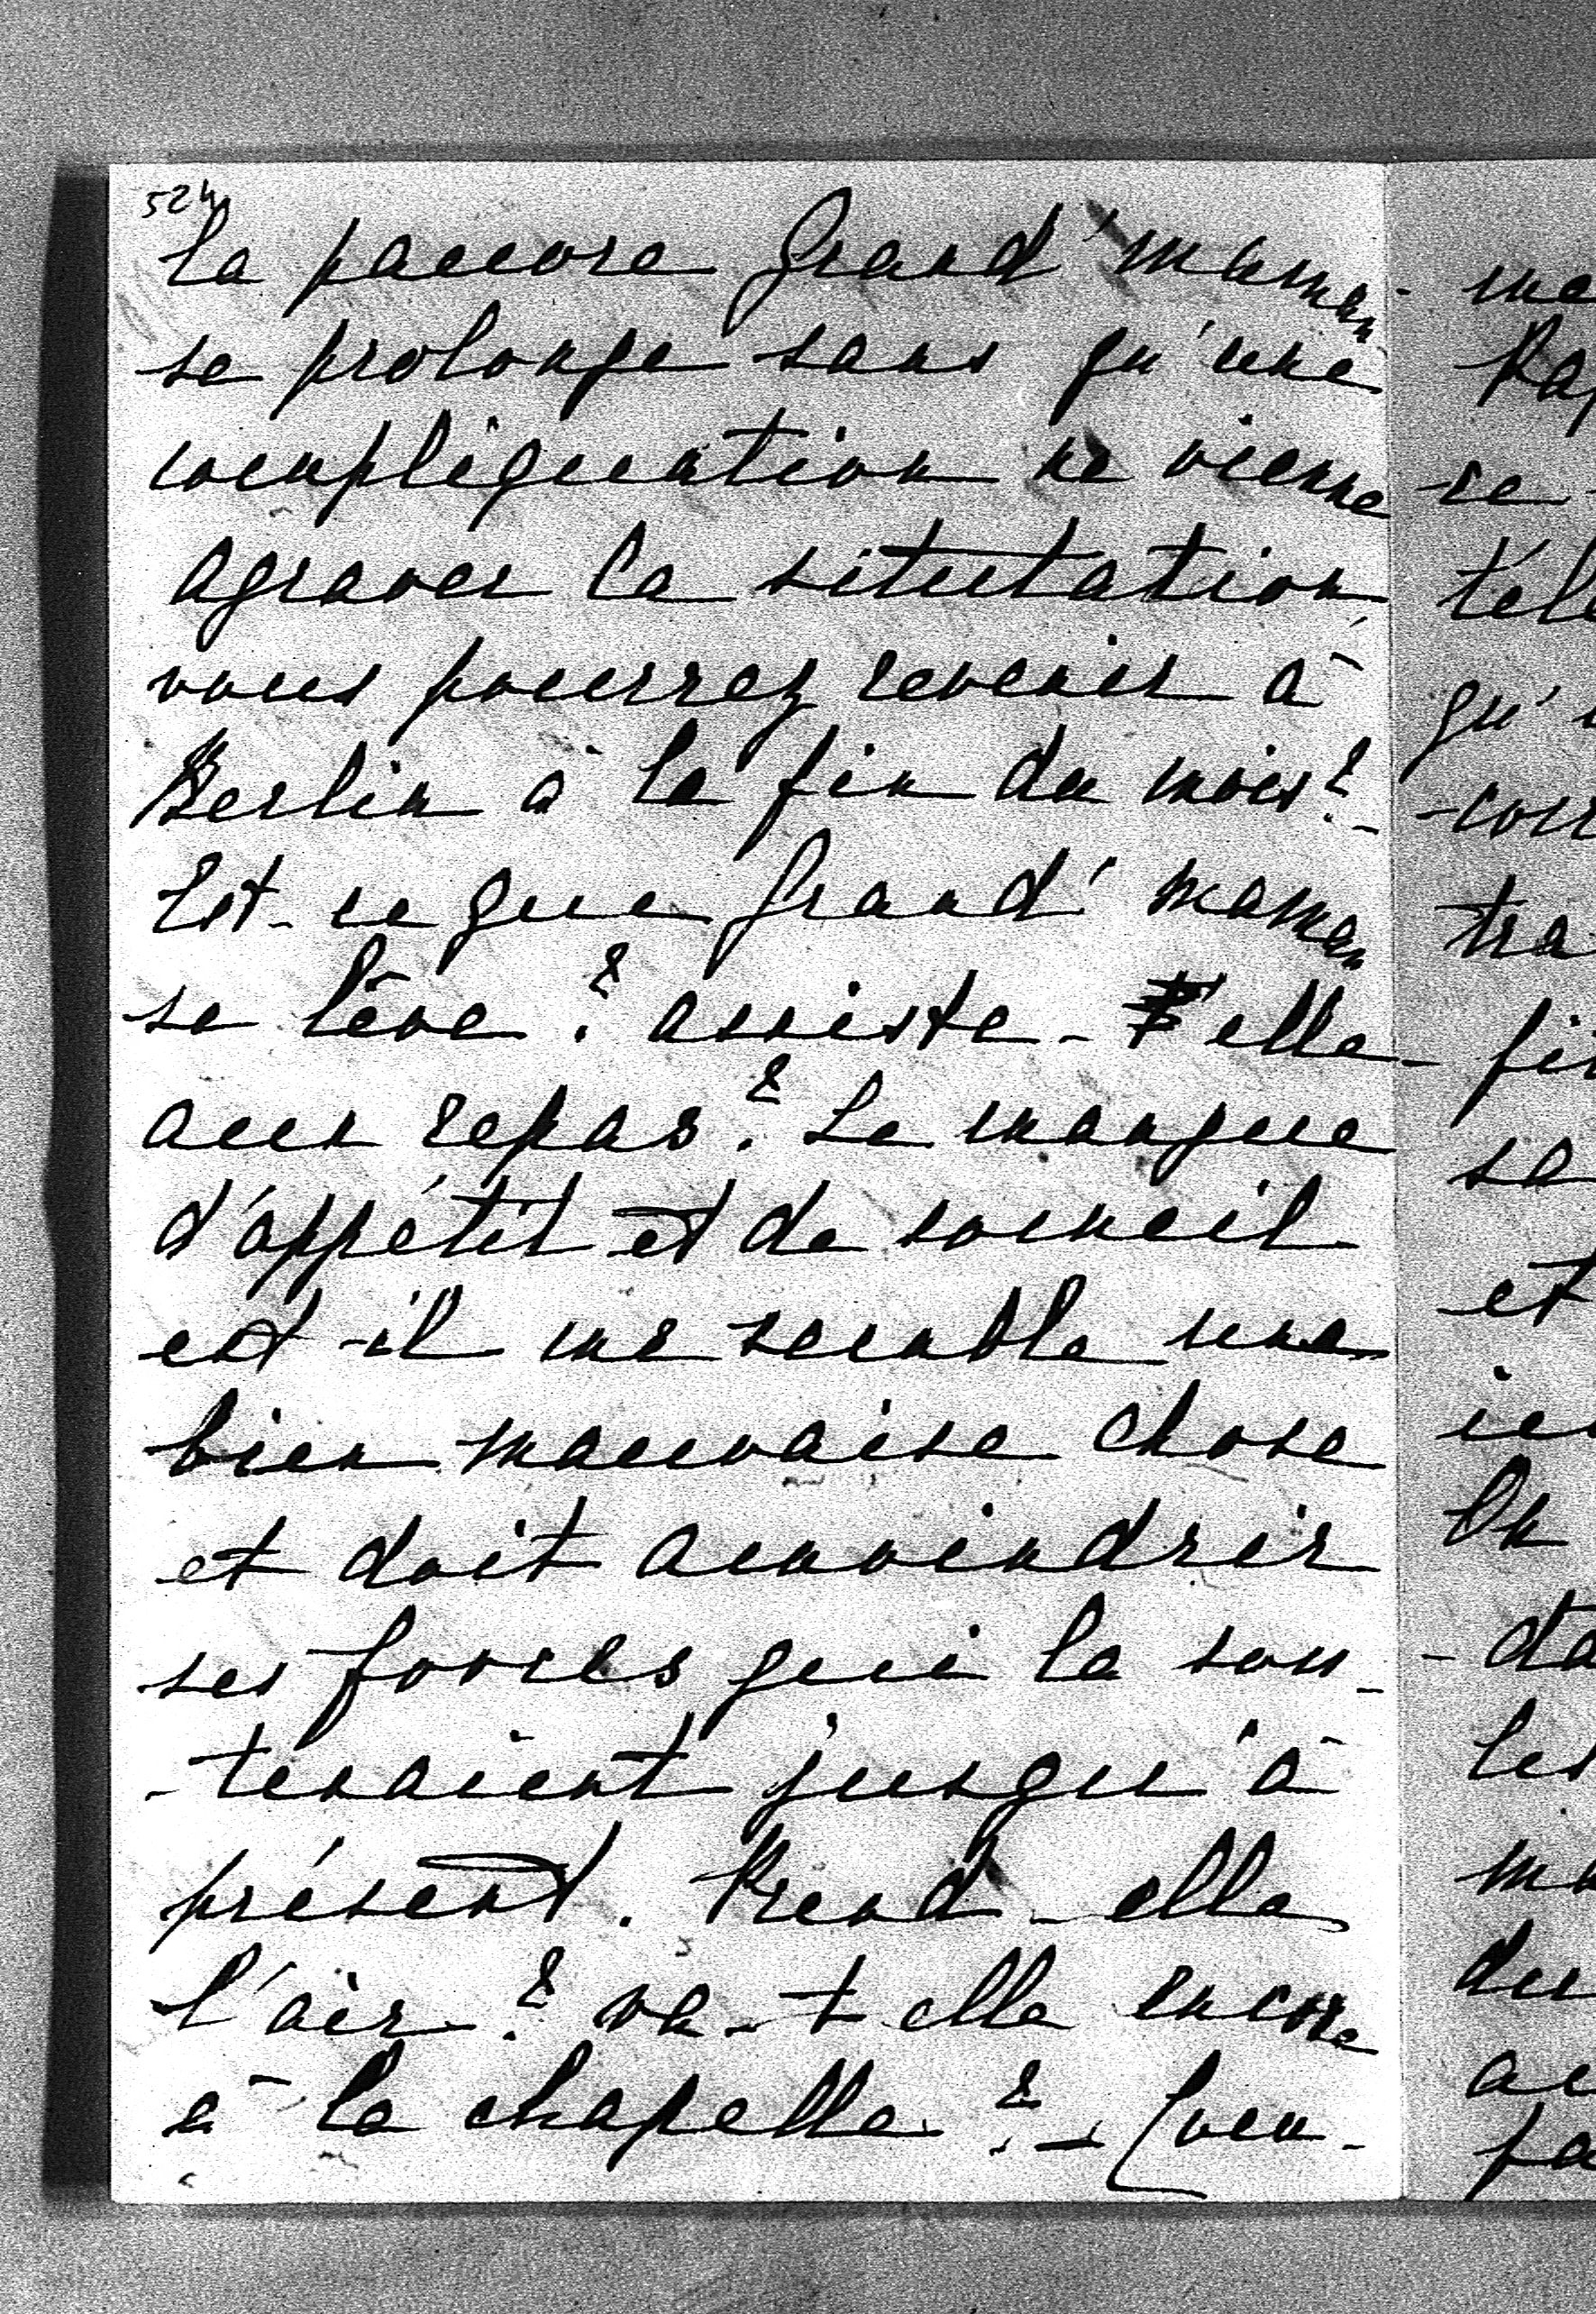 524
la pauvre Grand'maman
se prolonge sans qu'une
compliquation ne vienne
agraver la situtation
vous pourrez revenir à
Berlin à la fin du mois?
Est-ce que Grand'maman
se lève? assiste-t'elle
aux repas? Le manque
d'appétit et de someil
est-il me semble une
bien mauvaise chose
et doit amoindrir
ses forces qui la sou-
-tenaient jusqu'à
présent. Prend-elle
l'air? va-t elle encore
à la chapelle?
me
re
tél
qu'
-con
tra
fin
sa
et
-da
les
du